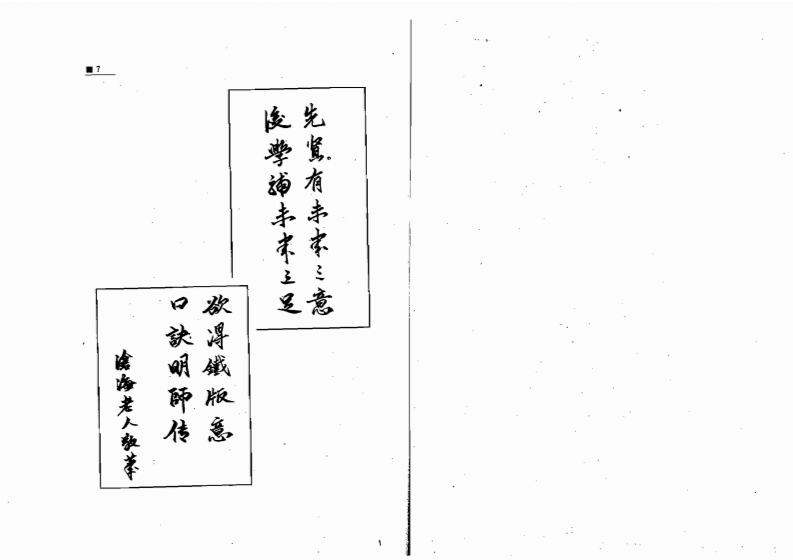 7
先賢有未來之意
後學補未來之足
欲得鐵版意
口訣明師传
滄海老人敬筆
1